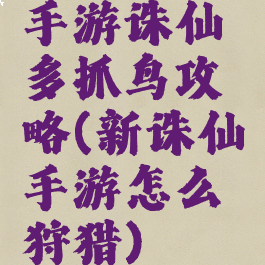 手游诛仙
多抓鸟攻
略(新诛仙
手游怎么
狩猎)